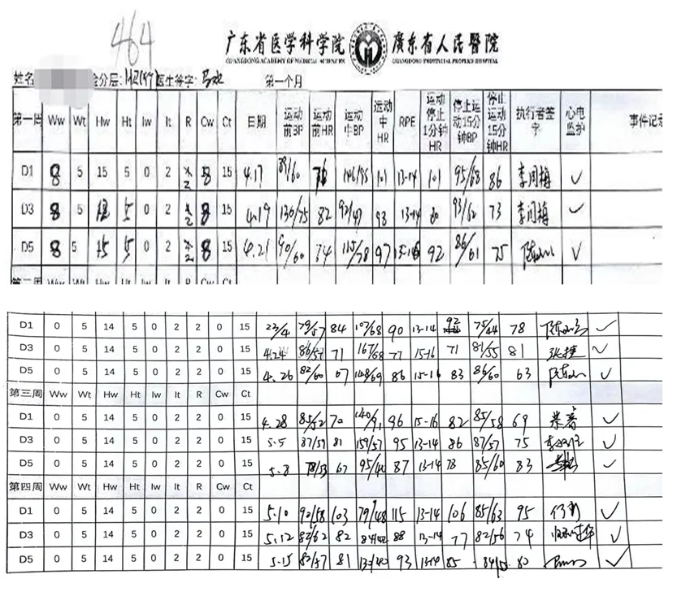 464
广东省医学科学院 廣东省人民醫院
GUANGDONG ACADEMY OF MEDICAL SCIENCES GUANGDONG PROVINCIAL PEOPLE'S HOSPITAL
姓名 分层: 医生签字: 第一个月
第一周 Ww Wt Hw Ht Iw It R Cw Ct 日期 运动前BP 运动前HR 运动中BP 运动中HR RPE 运动停止1分钟HR 停止运动15分钟BP 停止运动15分钟HR 执行者签字 心电监护 事件记录
D1 8 5 15 5 0 2 2 8 15 4.17 76 101 13-14 101 95/68 86 ✓
D3 8 5 5 0 2 2 8 15 4.19 130/75 82 92/47 98 13-14 80 93/62 73 ✓
D5 8 5 15 5 0 2 2 8 15 4.21 90/60 74 115/58 97 15-16 92 86/61 75 ✓
第二周 Ww Wt Hw Ht Iw It R Cw Ct
D1 0 5 14 5 0 2 2 0 15 23/4 84 107/68 90 13-14 92 75/64 78 ✓
D3 0 5 14 5 0 2 2 0 15 4.24 71 167/68 77 15-16 71 81/55 81 ✓
D5 0 5 14 5 0 2 2 0 15 4.26 82/60 67 86 15-16 83 86/60 63 ✓
第三周 Ww Wt Hw Ht Iw It R Cw Ct
D1 0 5 14 5 0 2 2 0 15 4.28 85/52 70 140/91 96 15-16 82 85/58 69 ✓
D3 0 5 14 5 0 2 2 0 15 5.5 87/59 81 159/57 95 13-14 86 87/57 75 ✓
D5 0 5 14 5 0 2 2 0 15 5.8 78/53 67 95/40 87 13-14 78 85/60 83 ✓
第四周 Ww Wt Hw Ht Iw It R Cw Ct
D1 0 5 14 5 0 2 2 0 15 5.10 90/58 103 79/48 115 13-14 106 85/63 95 ✓
D3 0 5 14 5 0 2 2 0 15 5.12 82/62 82 88 13-14 77 82/56 74 ✓
D5 0 5 14 5 0 2 2 0 15 5.15 82/57 81 93 13-14 85 80 ✓